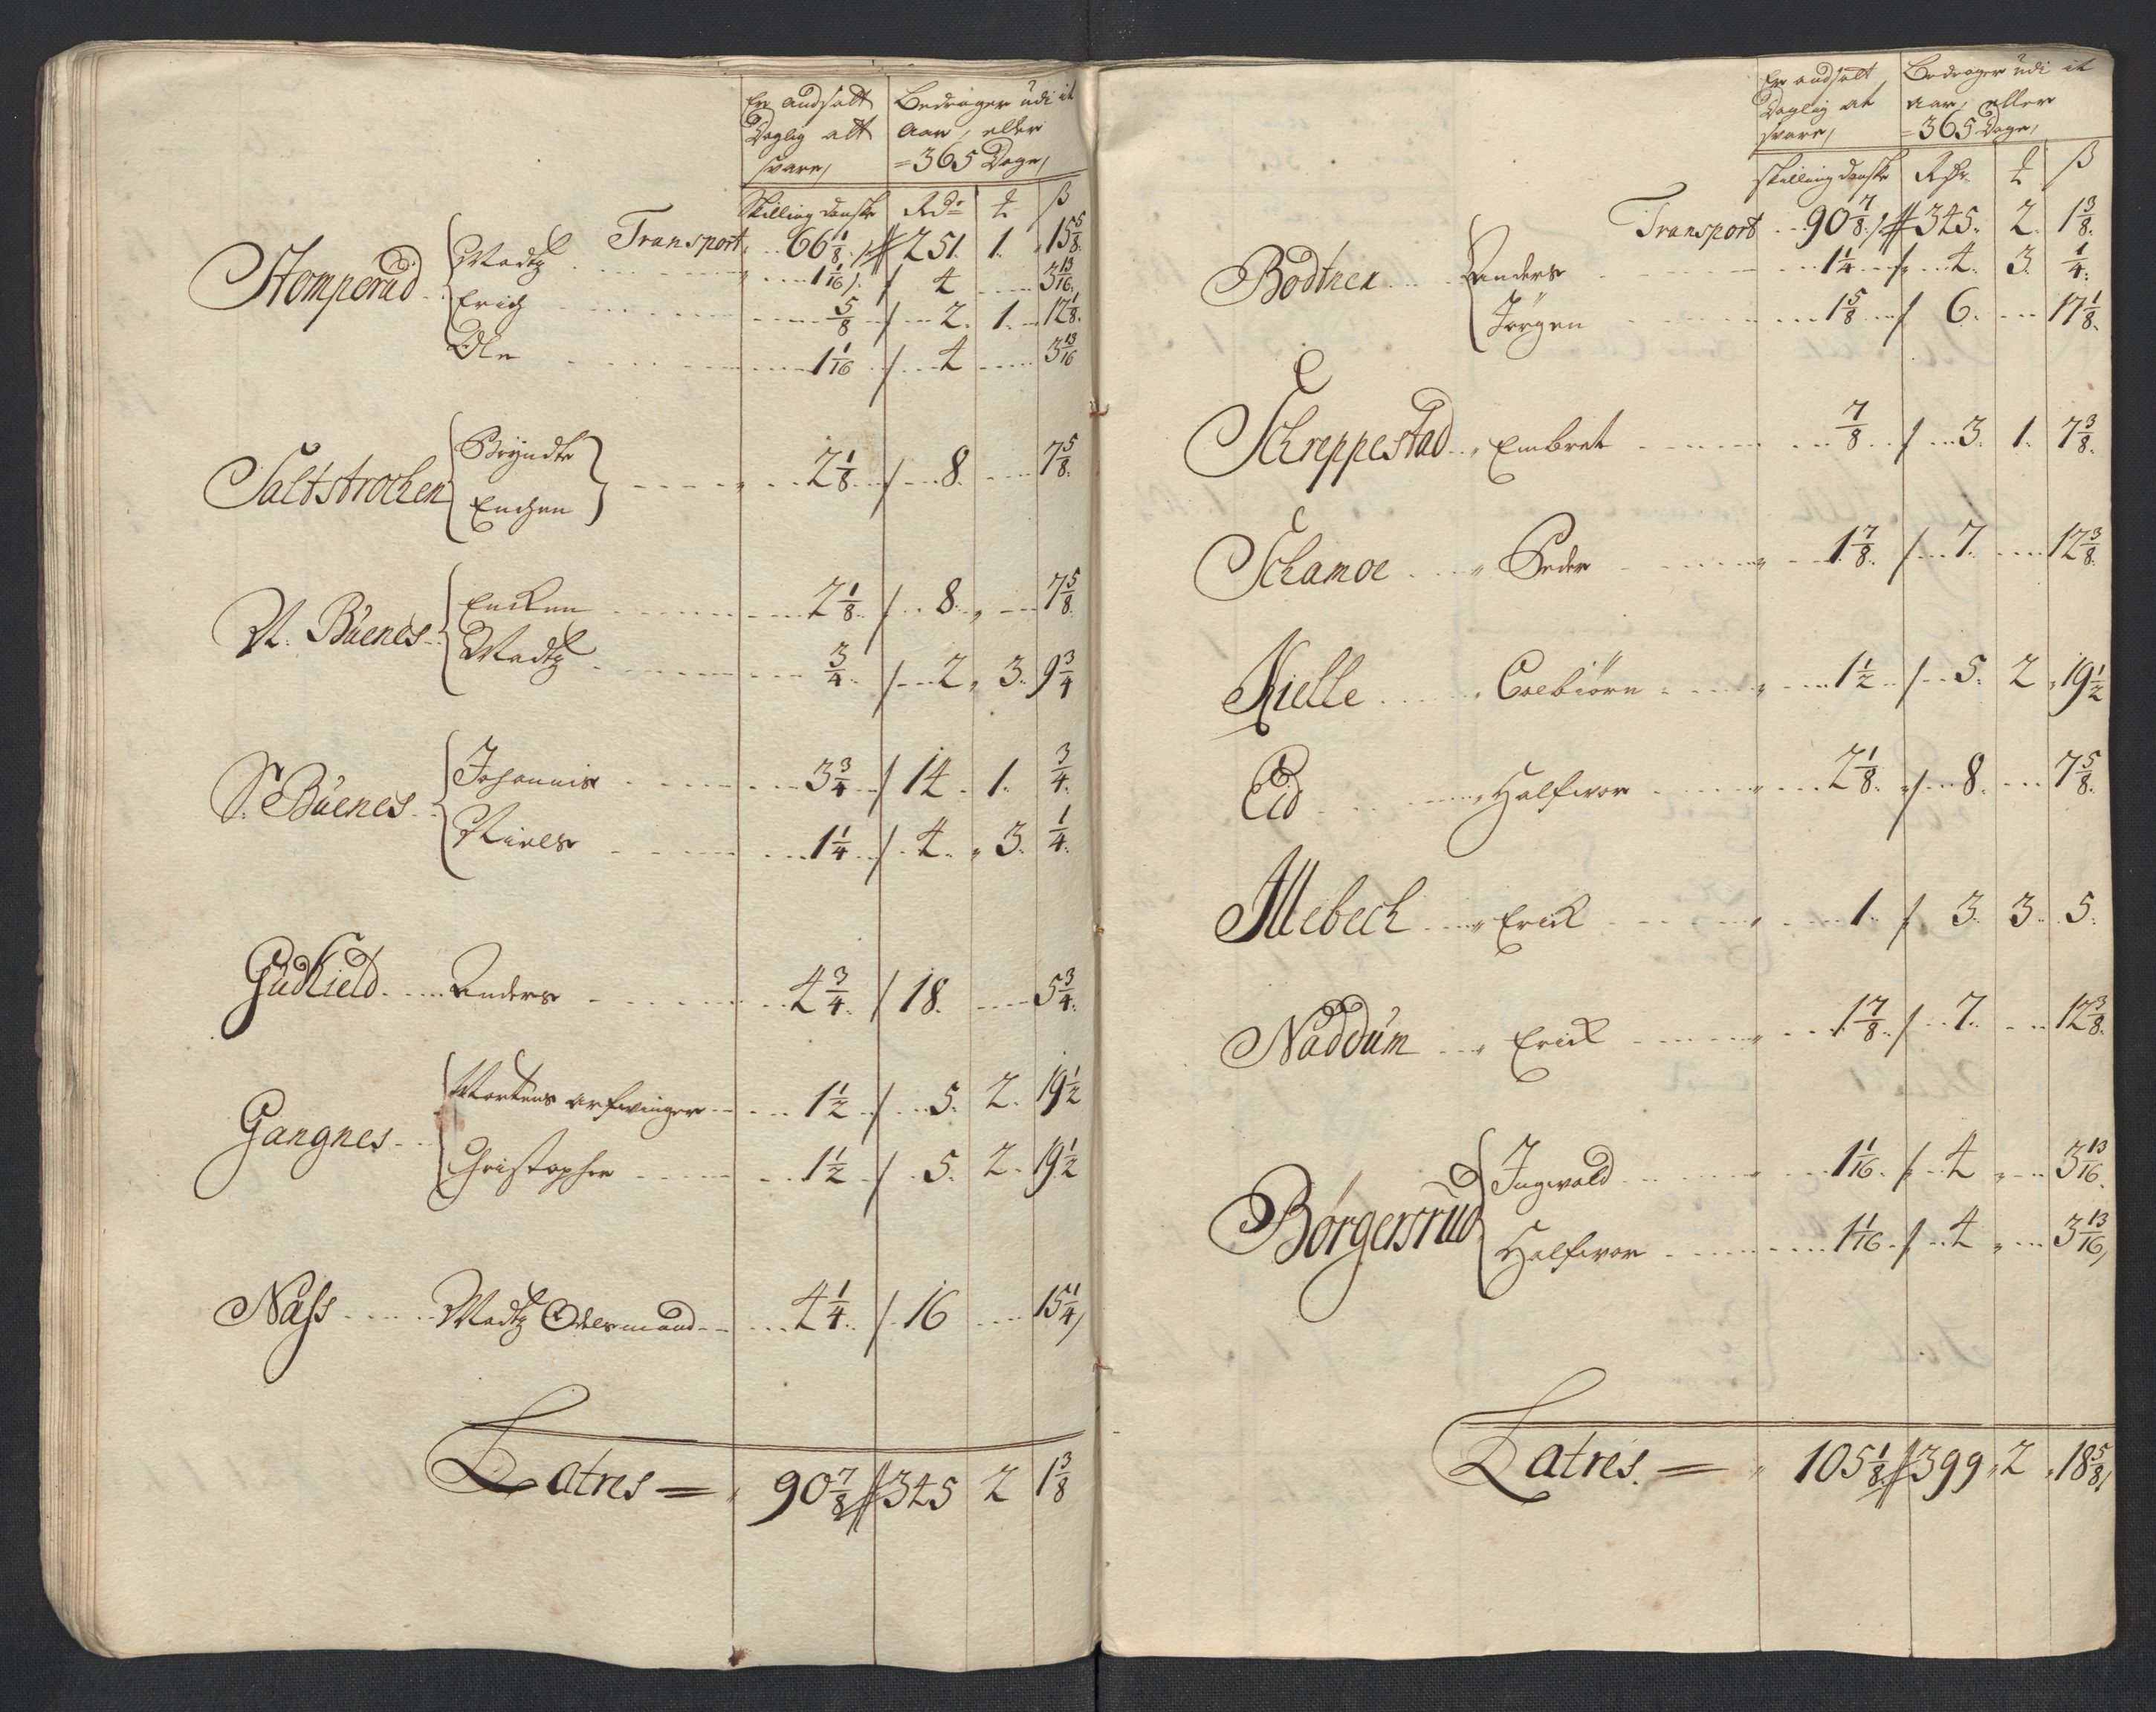 Er andsatt
Daglig att
svare,
Bedrager udi it
Aar, eller
=365 Dage,
Skilling danske Rdr ȶ β
Transport 66 1/8 251. 1. 15 5/8.
Stomperud Madtz 1 1/16 4 3 13/16.
Erich 5/8 2. 1. 12 1/8.
Ole 1 1/16 4 3 13/16
Saltstrochen Bryndte
Enchen 2 1/8. 8. 7 5/8.
N. Buenes Encken 2 1/8. 8. 7 5/8.
Madtz 3/4. 2. 3. 9 3/4
S. Buenes Johannis 3 3/4 14. 1. 3/4.
Niels 1 1/4 4. 3. 1/4.
Gudkield Anders 4 3/4. 18. 5 3/4.
Gangnes Mortens arfwinger 1 1/2 5. 2. 19 1/2
Christopher 1 1/2 5. 2. 19 1/2
Næss Madtz Odelsmand 4 1/4. 16 15 1/4,
Latres = 90 7/8 345 2 1 3/8
Er andsatt
Daglig at
svare,
Bedrager udi it
Aar, eller
=365 Dage,
skilling danske Rdr. ȶ β
Transport 90 7/8. 345. 2. 1 3/8.
Bodtner Anders 1 1/4 4. 3. 1/4.
Jörgen 1 5/8 6. 17 1/8.
Schreppestad Embret 7/8 3. 1. 7 3/8.
Schamoe Peder 1 7/8. 7. 12 3/8.
Kielle Esebiörn 1 1/2 5. 2. 19 1/2
Eid Halfwor 2 1/8. 8. 7 5/8.
Mebech Erick 1. 3. 3. 5.
Naddum Erick 1 7/8. 7. 12 3/8.
Børgersrud Ingwald 1 1/16. 4 3 13/16.
Halfwor 1 1/16. 4 3 13/16,
Latres. = 105 1/8 399. 2. 18 5/8,